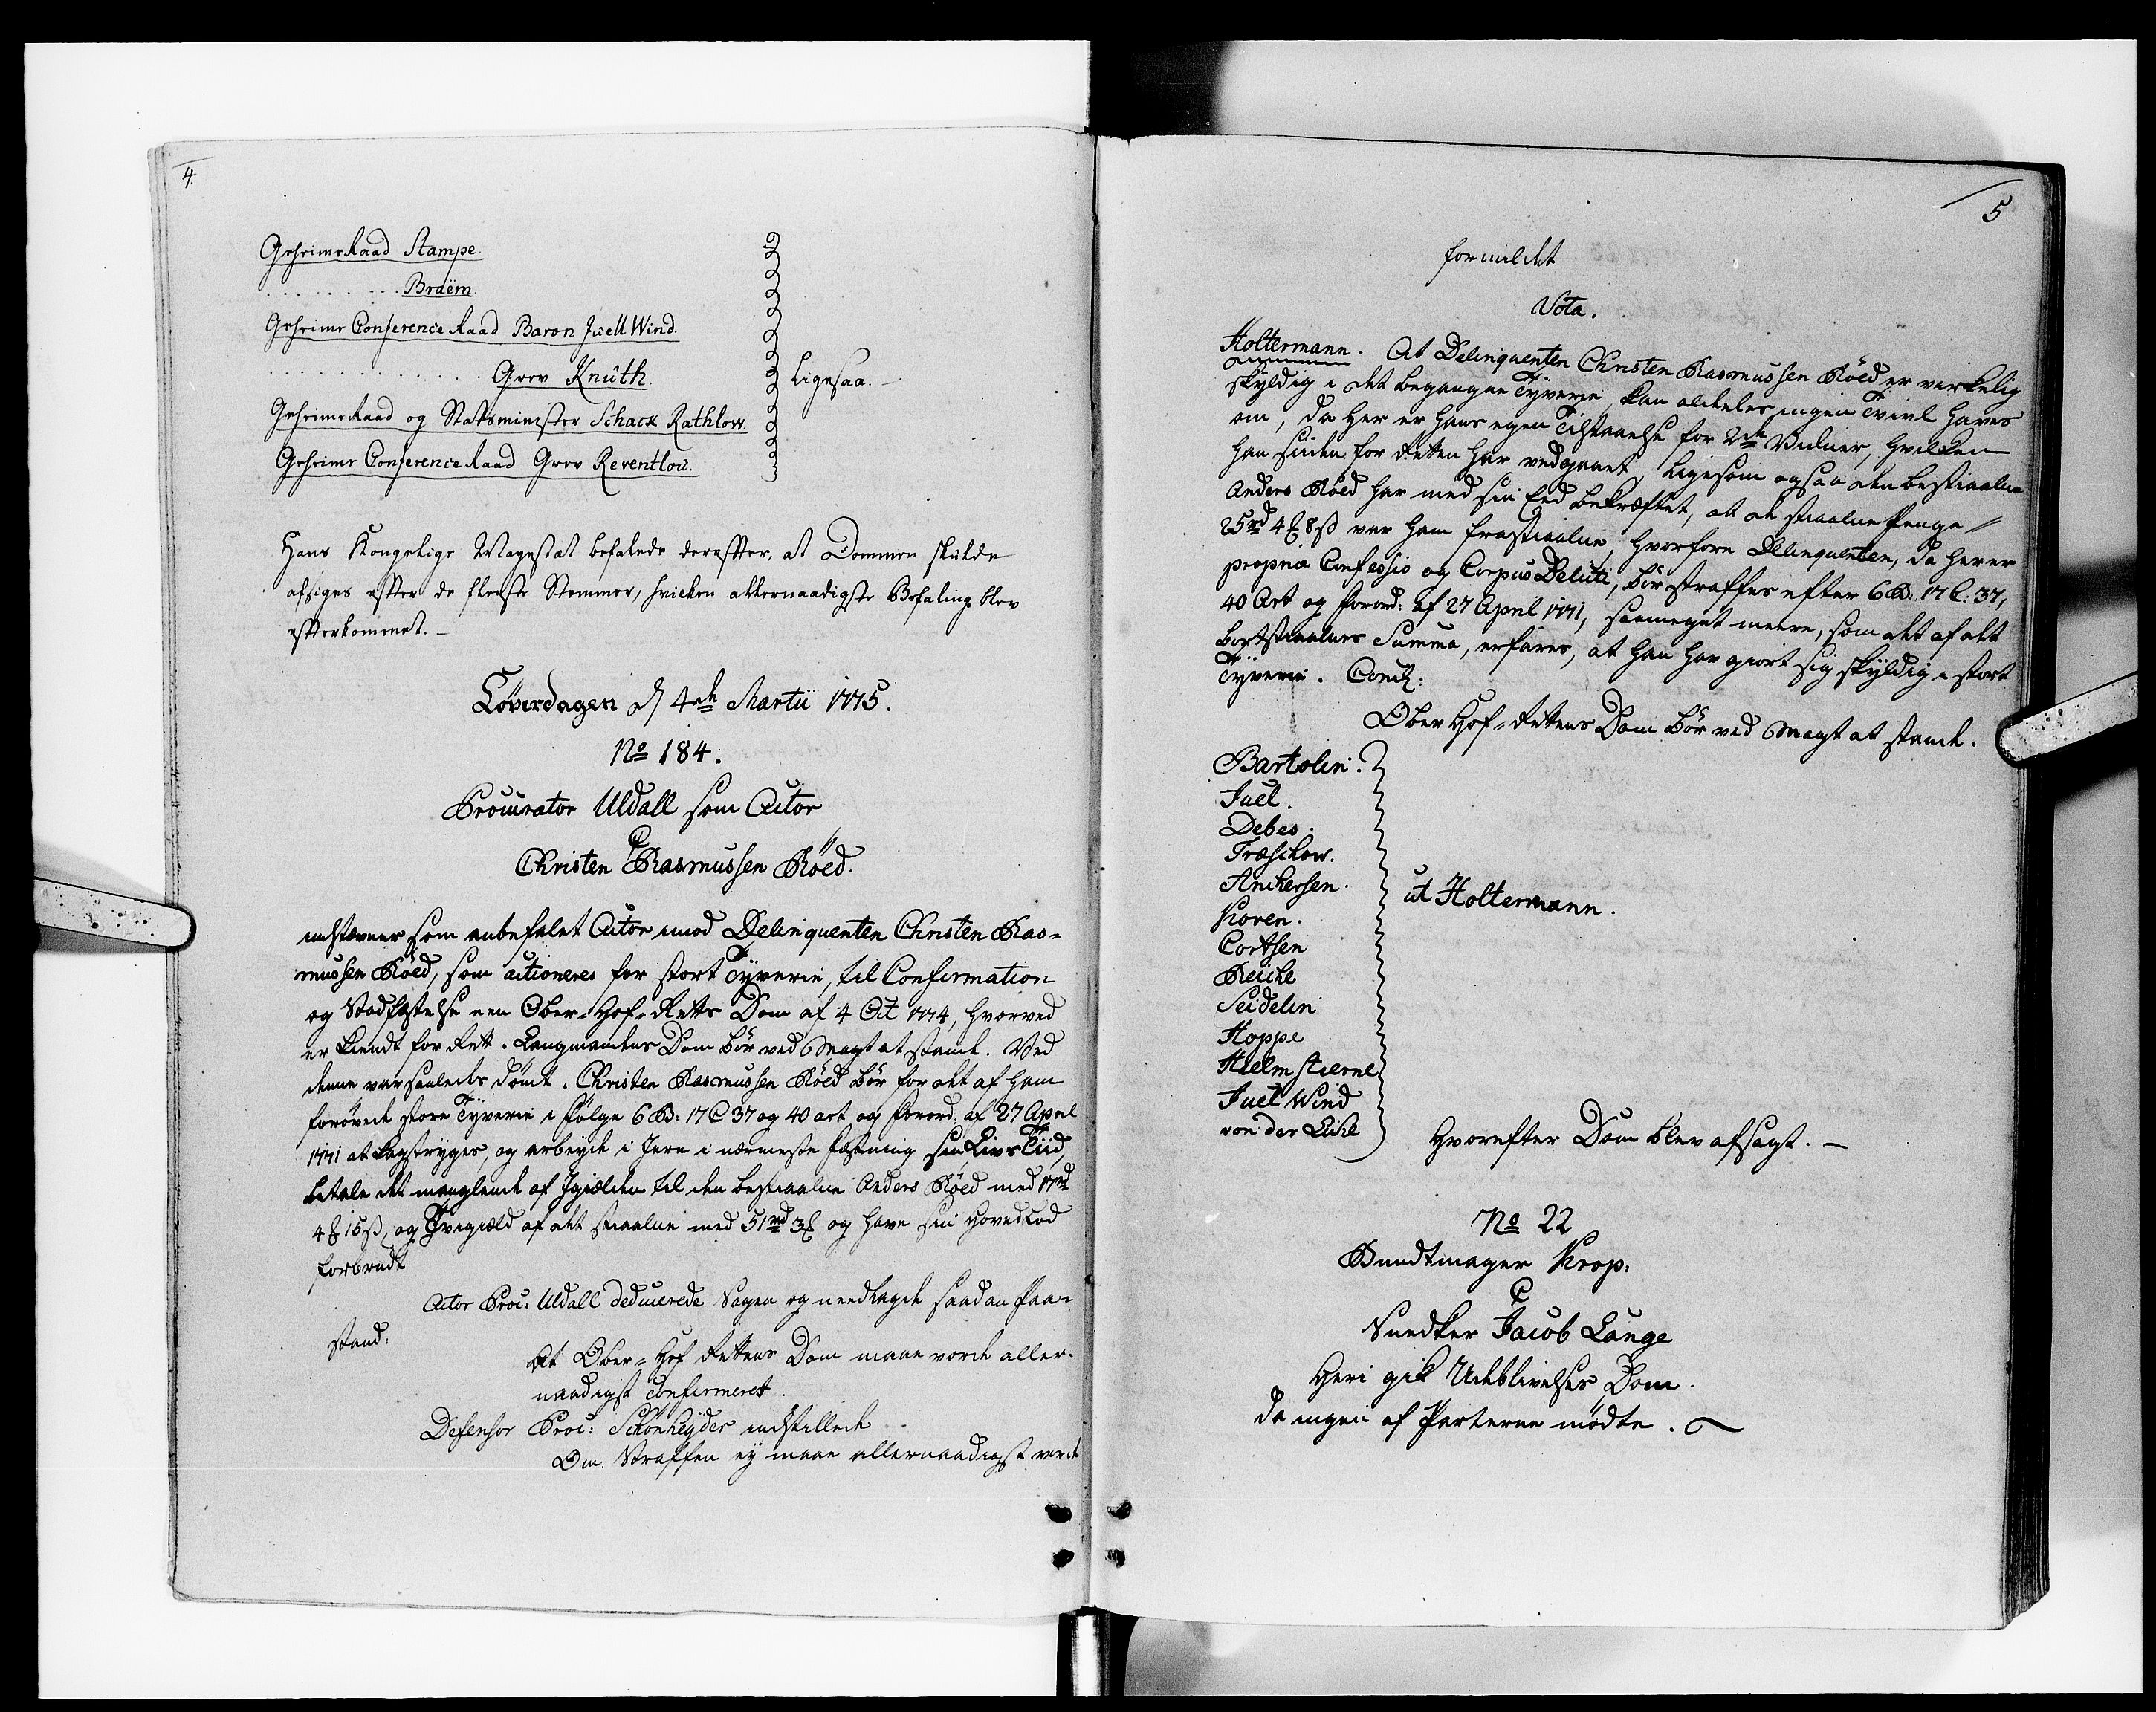 4.
Geheime Raad Stampe.
. . . . . . . . . . . Braëm.
Geheime Conference Raad Baron Juell Wind.
. . . . . . . . . . . . . Grev Knuth.
Ligesaa. —
Geheime Raad og Statsminister Schack Rathlow.
Geheime Conference Raad Grev Reventlow.
Hans Kongelige Mayestæt befalede derefter, at Dommen skulde
afsiges efter de fleeste Stemmer, hvilken allernaadigste Befaling blev
efterkommet. —
Löverdagen d 4de Martii 1775.
No 184.
Procurator Uldall som Actor
C
Christen Rasmussen Röed.
indstævner som anbefalet Actor imod Delinquenten Christen Ras-
mussen Röed, som actioneres for stort Tyverie, til Confirmation
og Stadfæstelse een Ober-Hof-Retts Dom af 4 Oct 1774, hvorved
er kiendt for Rett. Langmandens Dom bör ved Magt at stande. Ved
denne var saaledes dömt. Christen Rasmussen Röed bör for det af ham
forövede store Tyverie i fölge 6 B: 17 C 37 og 40 art og Forord. af 27 April
1771 at kagstryges, og arbeyde i Jern i nærmeste Fæstning sin Livs Tiid,
betale det manglende af Igiælden til den bestiaalne Anders Röed med 17rd
4 ₰ 15 ß, og Tvigiæld af det stiaalne med 51rd 3₰ og have sin Hovedlod
forbrudt
Actor Proc: Uldall deducerede Sagen og nedlagde saadan Paa-
stand:
At Ober-Hof Rettens Dom maae vorde aller-
naadigst confirmeret.
Defensor Proc: Schönheyder indstillede
Om Straffen ej maae allernaadigst vorde
5
formildet
Vota.
Holtermann. At Delinquenten Christen Rasmussen Röed er verkelig
skyldig i det begangne Tyverie kan aldeles ingen Tvivl haves
om, da her er hans egen Tilstaaelse for 2de Vidner, hvilken
han siden for Retten har vedgaaet, ligesom ogsaa den bestiaalne
Anders Röed har med sin Eed bekræftet, at de stiaalne Penge
25rd 4₰ 8ß var ham frastiaalne, hvorfore Delinquenten, da her er
propria Confessio og Corpus Delicti, bör straffes efter 6 B: 17 C: 37,
40 Art og Forord: af 27 April 1771, saameget meere, som det af det
bortstiaalnes Summa, erfares, at han har giort sig skyldig i stort
Tyverie. Concl:
Ober Hof-Rettens Dom bör ved Magt at stande.
Bartolin.
Juel.
Debes.
Træschow.
Anchersen.
Koren.
Cortsen
Reiche
Seidelin
Hoppe
Hielmstierne
Juel Wind
von der Lühe
ut Holtermann.
Hvorefter Dom blev afsagt. —
No 22
Bundtmager Krop:
C
Snedker Jacob Lange
Heri gik Udeblivelses Dom.
da ingen af Parterne mödte.